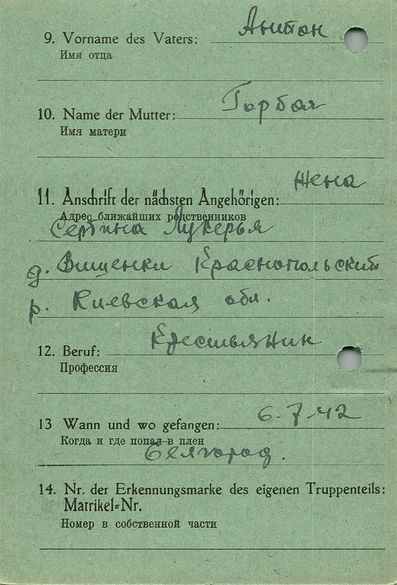 9. Vorname des Vaters: Антон
Имя отца
10. Name der Mutter: Горбая
Имя матери
11. Anschrift der nächsten Angehörigen: Жена
Адрес ближайших родственников
Сергина Лукерья
д. Вищенки Краснопольский
р. Киевская обл.
12. Beruf: Крестьянин
Профессия
13 Wann und wo gefangen: 6.7.42
Когда и где попал в плен
Белгород.
14. Nr. der Erkennungsmarke des eigenen Truppenteils:
Matrikel-Nr.
Номер в собственной части